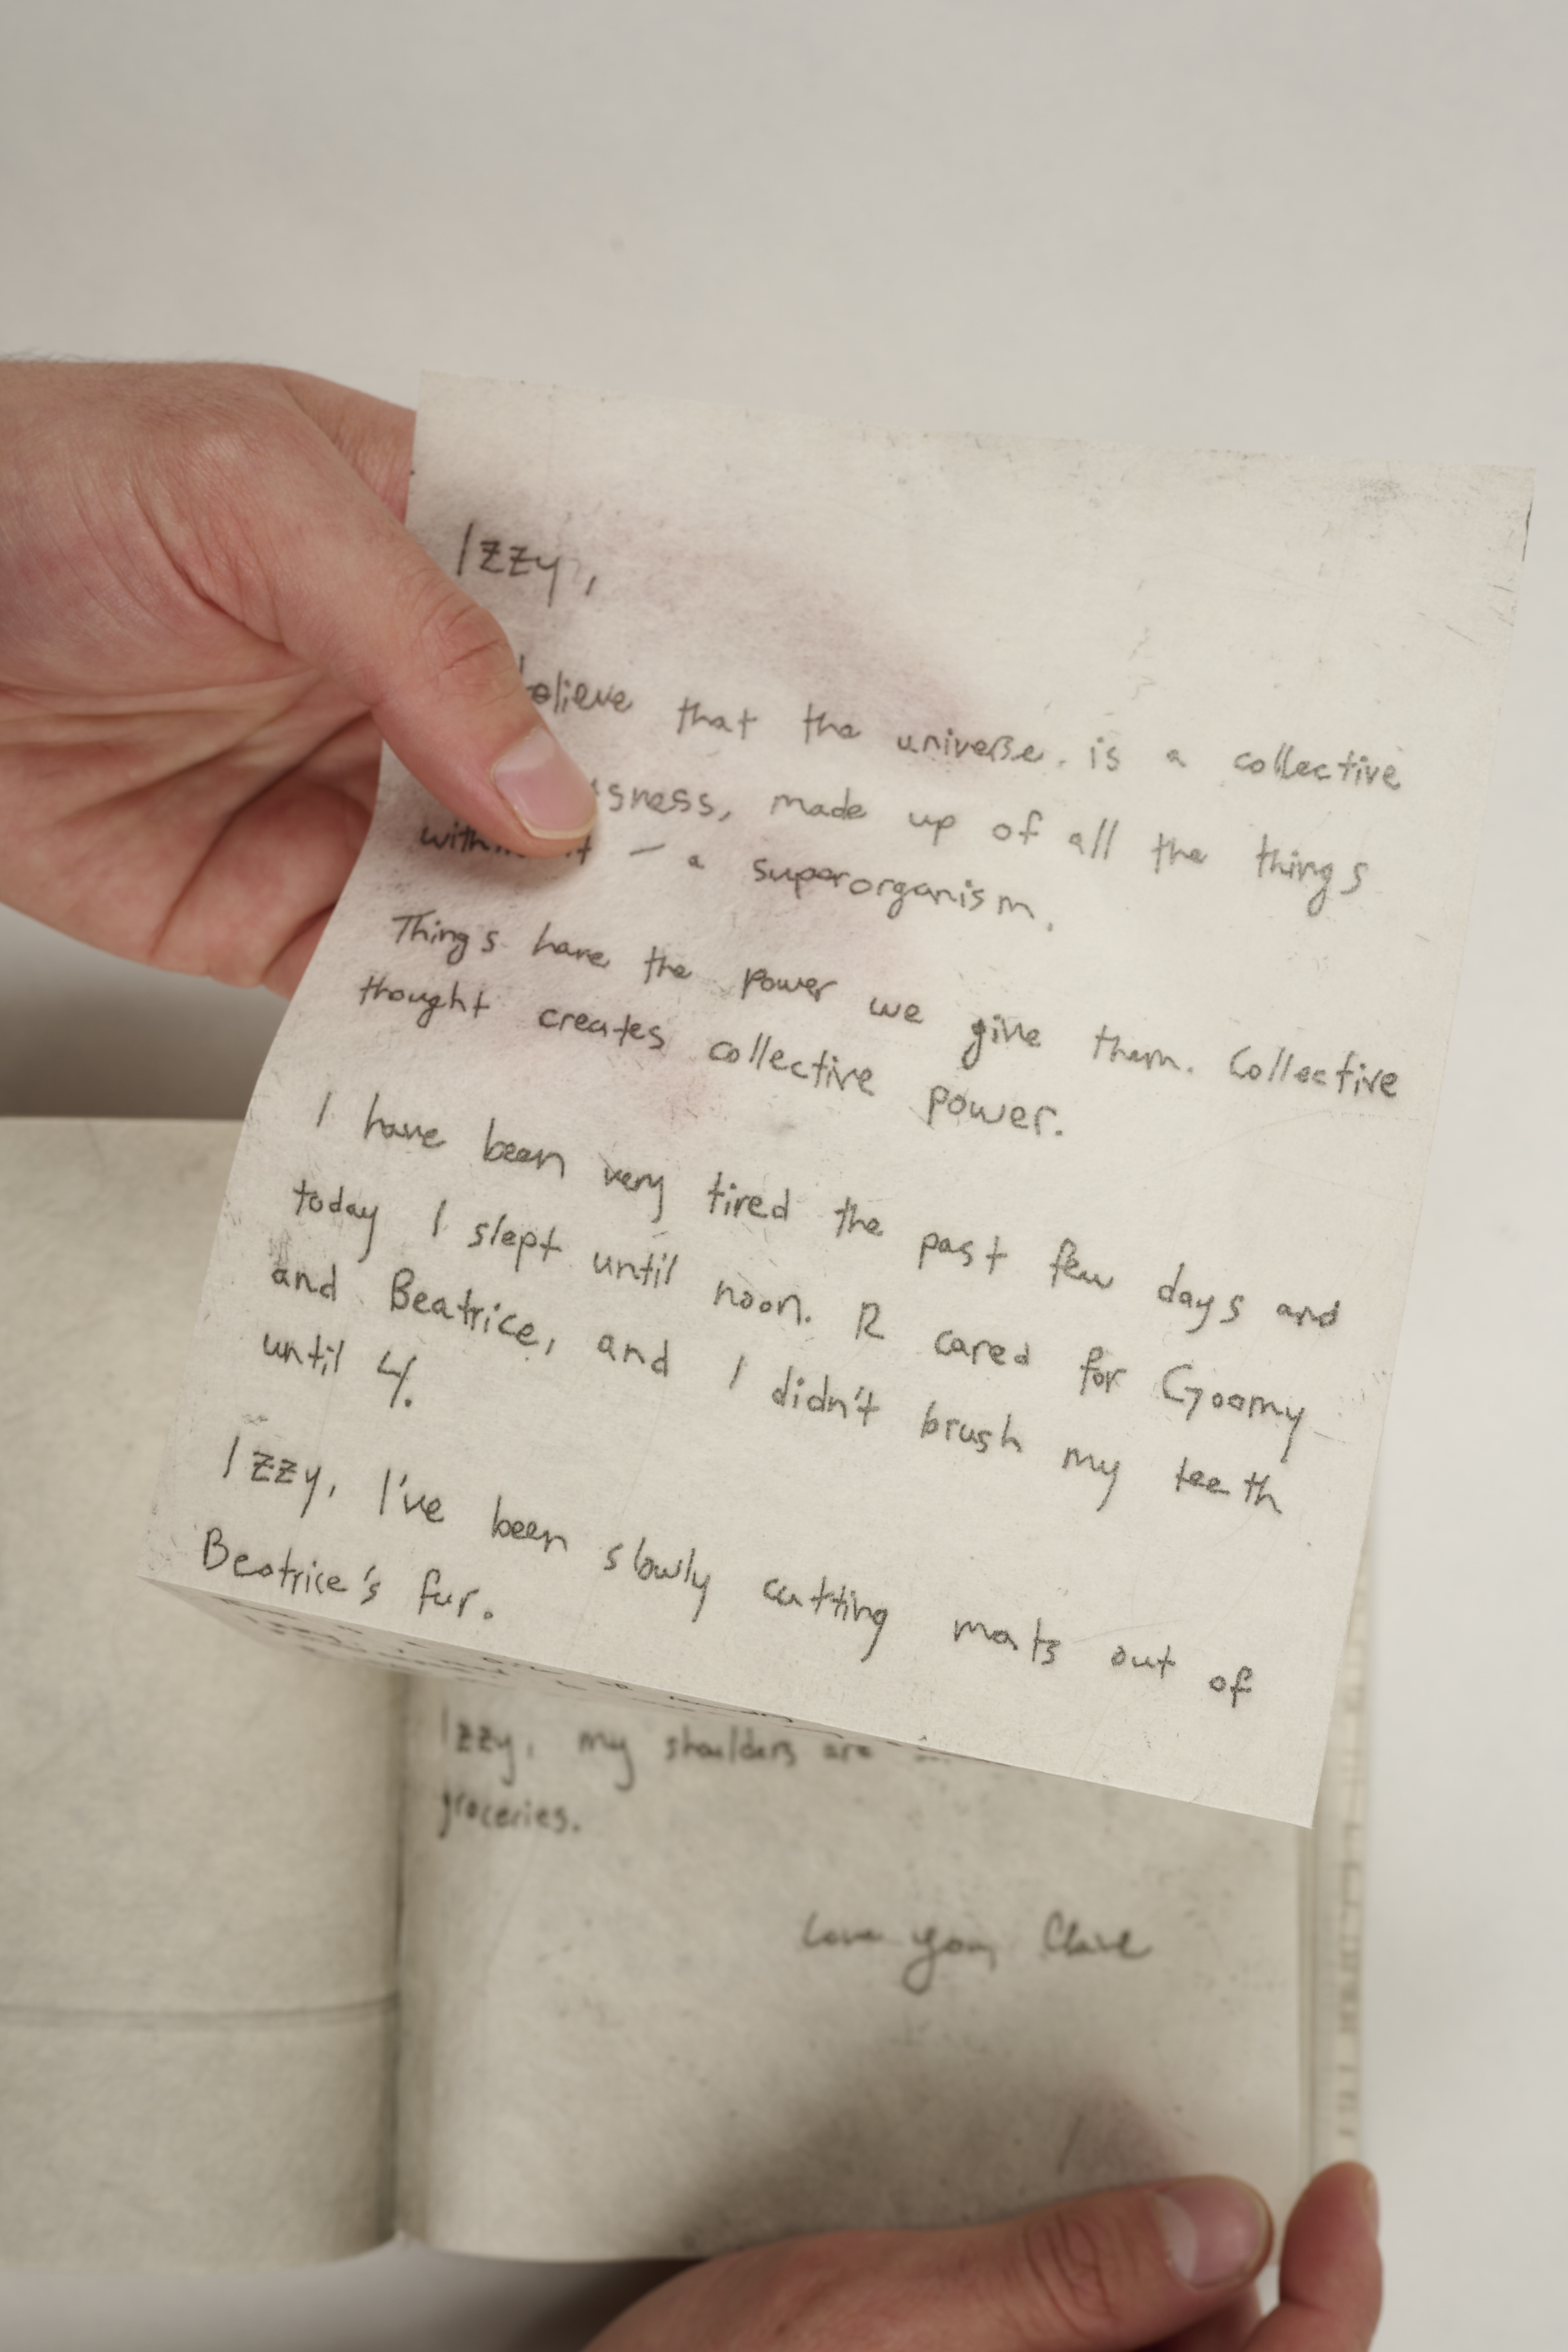 Izzy,
believe that the universe is a collective
made up of all the things
within it – a superorganism.
Things have the power we give them. Collective
thought creates collective power.
I have been very tired the past few days and
today I slept until noon. R cared for Goomy
and Beatrice, and I didn't brush my teeth
until 4.
Izzy, I've been slowly cutting mats out of
Beatrice's fur.
Izzy, my shoulders are
groceries.
Love you,